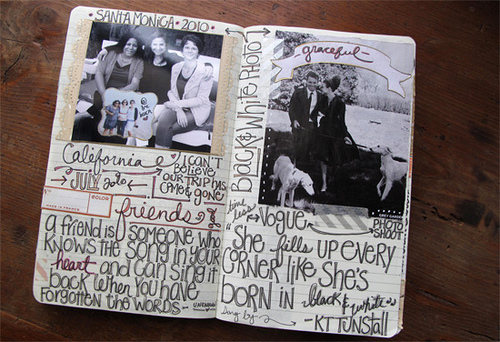 SANTA MONICA • 2010
California
JULY 2010
I CAN'T
BELIEVE
OUR TRIP HAS
COME & GONE
COLOR
friends
a friend is someone who
KNOWS THE SONG IN YOUR
heart and can sing it
BACK WHEN YOU HAVE
FORGOTTEN THE WORDS~
BACK & WHITE PHOTO
graceful
time
less
VOGUE
PHOTO
SHOOT
"She fills UP EVERY
CORNER LIKE SHE'S
BORN IN black & white"
Sung by
~KT TUNSTALL